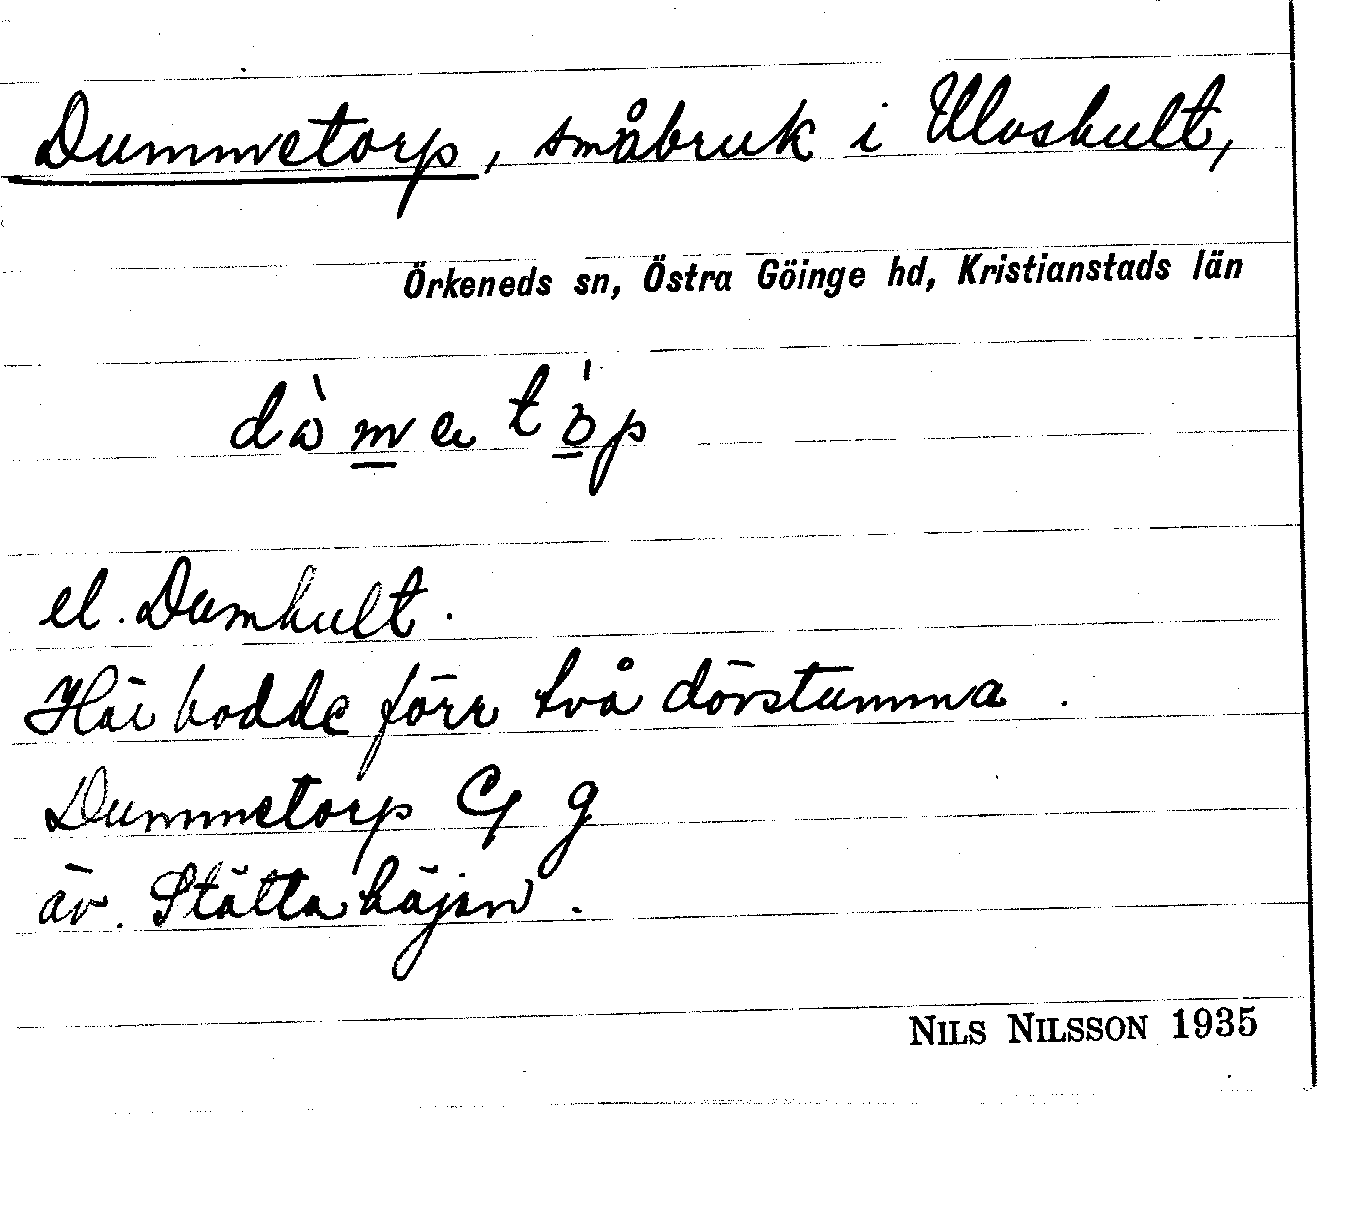 Dummetorp, småbruk i Uloshult,
Örkeneds sn, Östra Göinge hd, Kristianstads län
el. Dumhult.
Här bodde förr två dövstumma.
Dummetorp G g
äv. Stättahäjen.
NILS NILSSON 1935